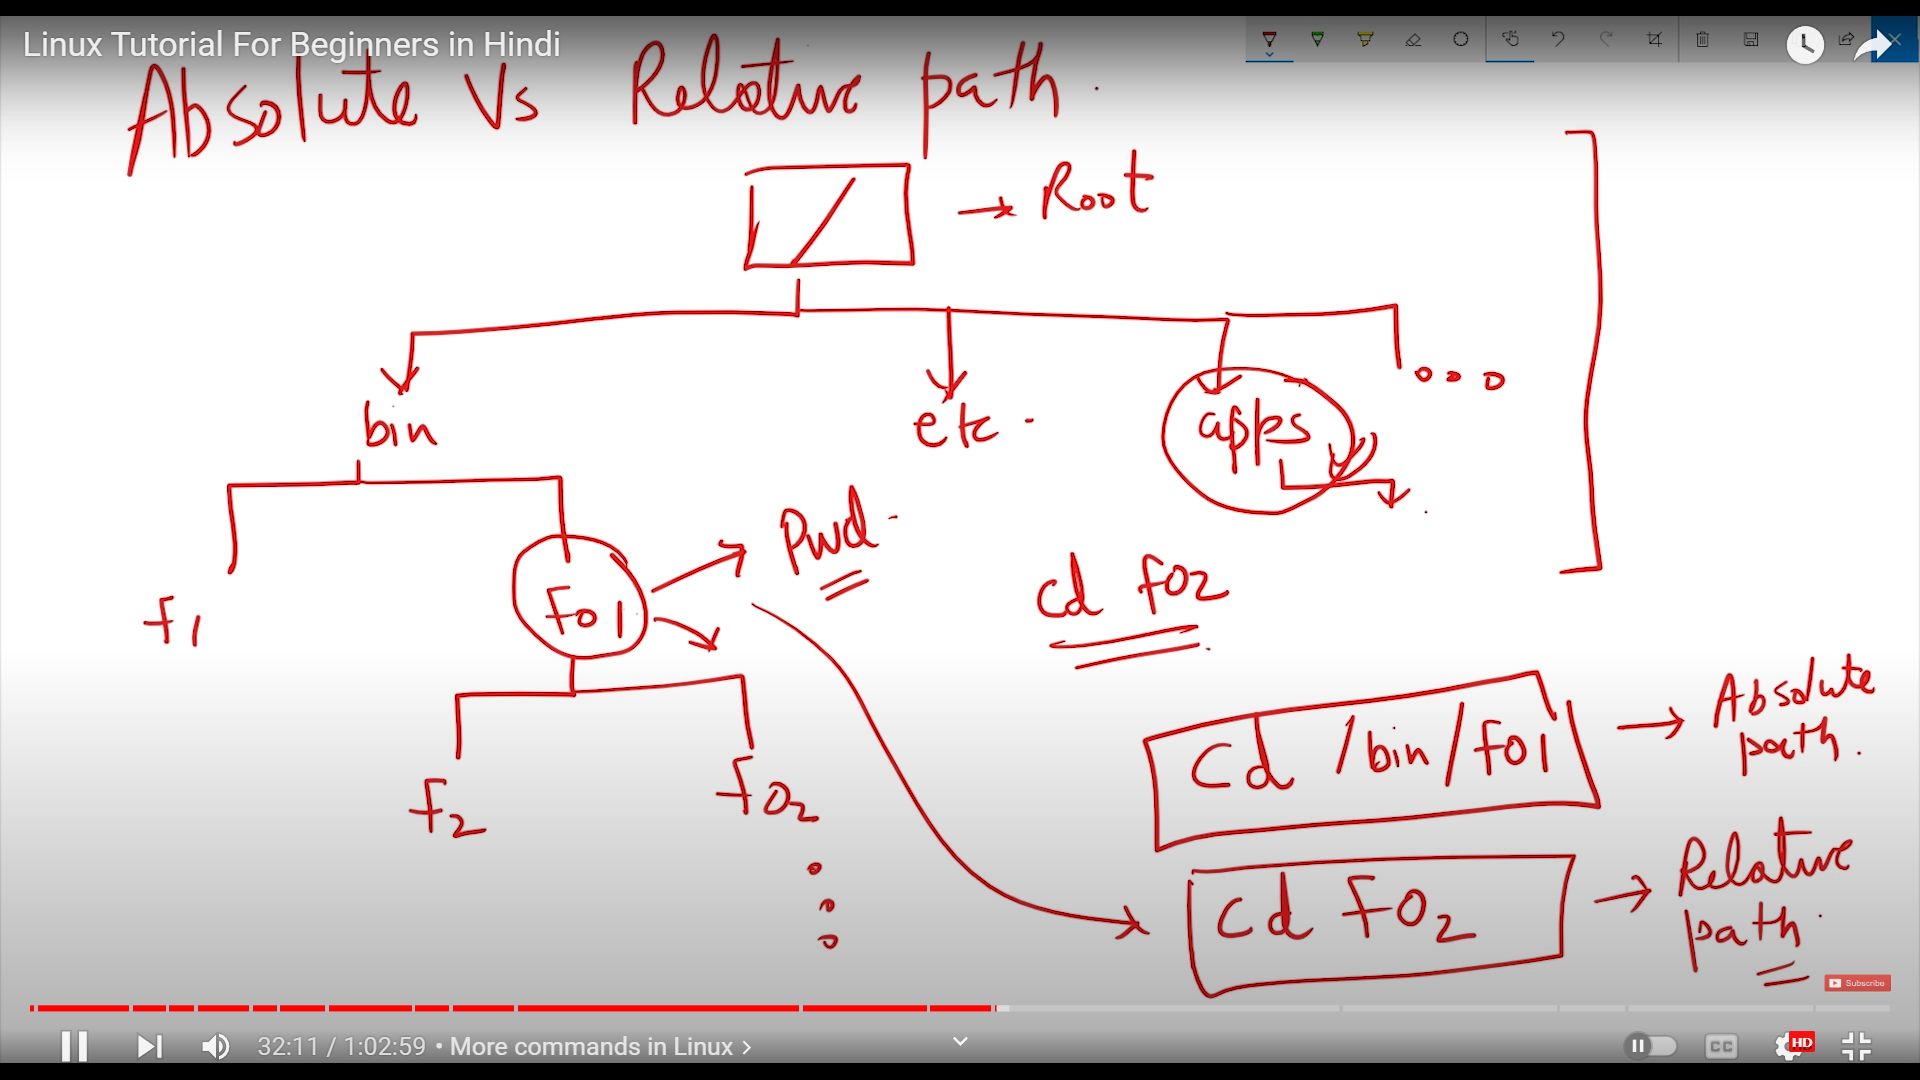 Linux Tutorial For Beginners in Hindi
Absolute Vs Relative path.
/ → Root
bin
etc.
apps
Pwd.
f1
fo1
cd fo2
f2
fo2
cd /bin/fo1 → Absolute path.
cd fo2 → Relative path.
Subscribe
32:11 / 1:02:59 • More commands in Linux >
CC
HD